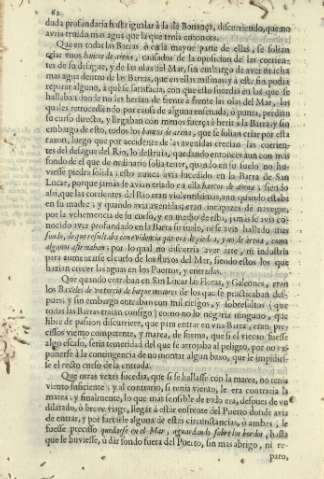 62
duda profundaria hasta igualar à la de Bonança, discurriendo, que no
avia traìda mas agua que la que traìa entonces.
Que en todas las Barras ò en la mayor parte de ellas, se solian
criar unos bancos de arena, causados de la oposicion de las corrien-
tes de su desague, y de las olas del Mar, sin embargo de aver mucha
mas agua dentro de las Barras, que en ellas mismas; à esto, sin podia
reparar alguno, à què se satisfacìa, con que esto sucedia en las que se
hallaban donde no les herian de frente à frente las olas del Mar, las
quales retrocediendo por causa de alguna ensenada, ò punta, perdian
su curso directa, y llegaban con menos fuerça à herir à la Barra, y sin
embargo de esto, todos los bancos de arena, que se solian criar por esta
razon, luego que por accidente de las avenidas crecian las corrien-
tes del desague del Rio, lo deshazia, quedando entonces aun con mas
fondo de el que de ordinario solia tener, quando en su suelo no hu-
viesse piedra solida; esto nunca avia sucedido en la Barra de San
Lucar, porque jamàs se avian criado en ella bancos de arena; siendo
assi, que las corrientes del Rio eran violentissimas, aun quando estaba
en su madre; y quando avia avenidas eran incapaces de navegar,
por la vehemencia de su curso, y en medio de esto, jamàs se avia co-
nocido avia profundado en la Barra su suelo, ni se avia hallado mas
fondo, de que resultaba convencidas que era de piedra, y no de arena, como
algunos afirmaban; por lo qual no discurria aver arte, ni industria
para aumentarse el curso de los fluxos del Mar, siendo estos los que
hazian crecer las aguas en los Puertos, y entradas.
Que quando entraban en San Lucar las Flotas, y Galeones, eran
los Baxeles de tercio de buque menores de los que se practicaban des-
pues; y sin embargo entraban con mil riesgos, y sobresaltos (que
todas las Barras traian consigo) como no lo negaria ninguno, que
libre de passion discurriere, que para entrar en vna Barra, era pre-
cisso viento competente, y marea, de forma, que si el viento fuesse
algo escaso, serìa temeridad del que se arrojaba al peligro, por no ex-
ponerse à la contingencia de no montar algun baxo, que le impidies-
se el recto curso de la entrada.
Que otras vezes sucedia, que si se hallasse con la marea, no tenia
viento suficiente; y al contrario, si tenia viento, le era contraria la
marea; y finalmente, lo que mas sensible de todo era, despues de un
dilatado, ò breve viage, llegar à estàr enfrente del Puerto donde avia
de entrar, y por faltarle alguna de estas circunstancias, ò ambas, le
fuesse precisso quedarse en el Mar, aguardando sobre los bordos, hasta
que le huviesse, ò dar fondo fuera del Puerto, sin mas abrigo, ni re-
paro,